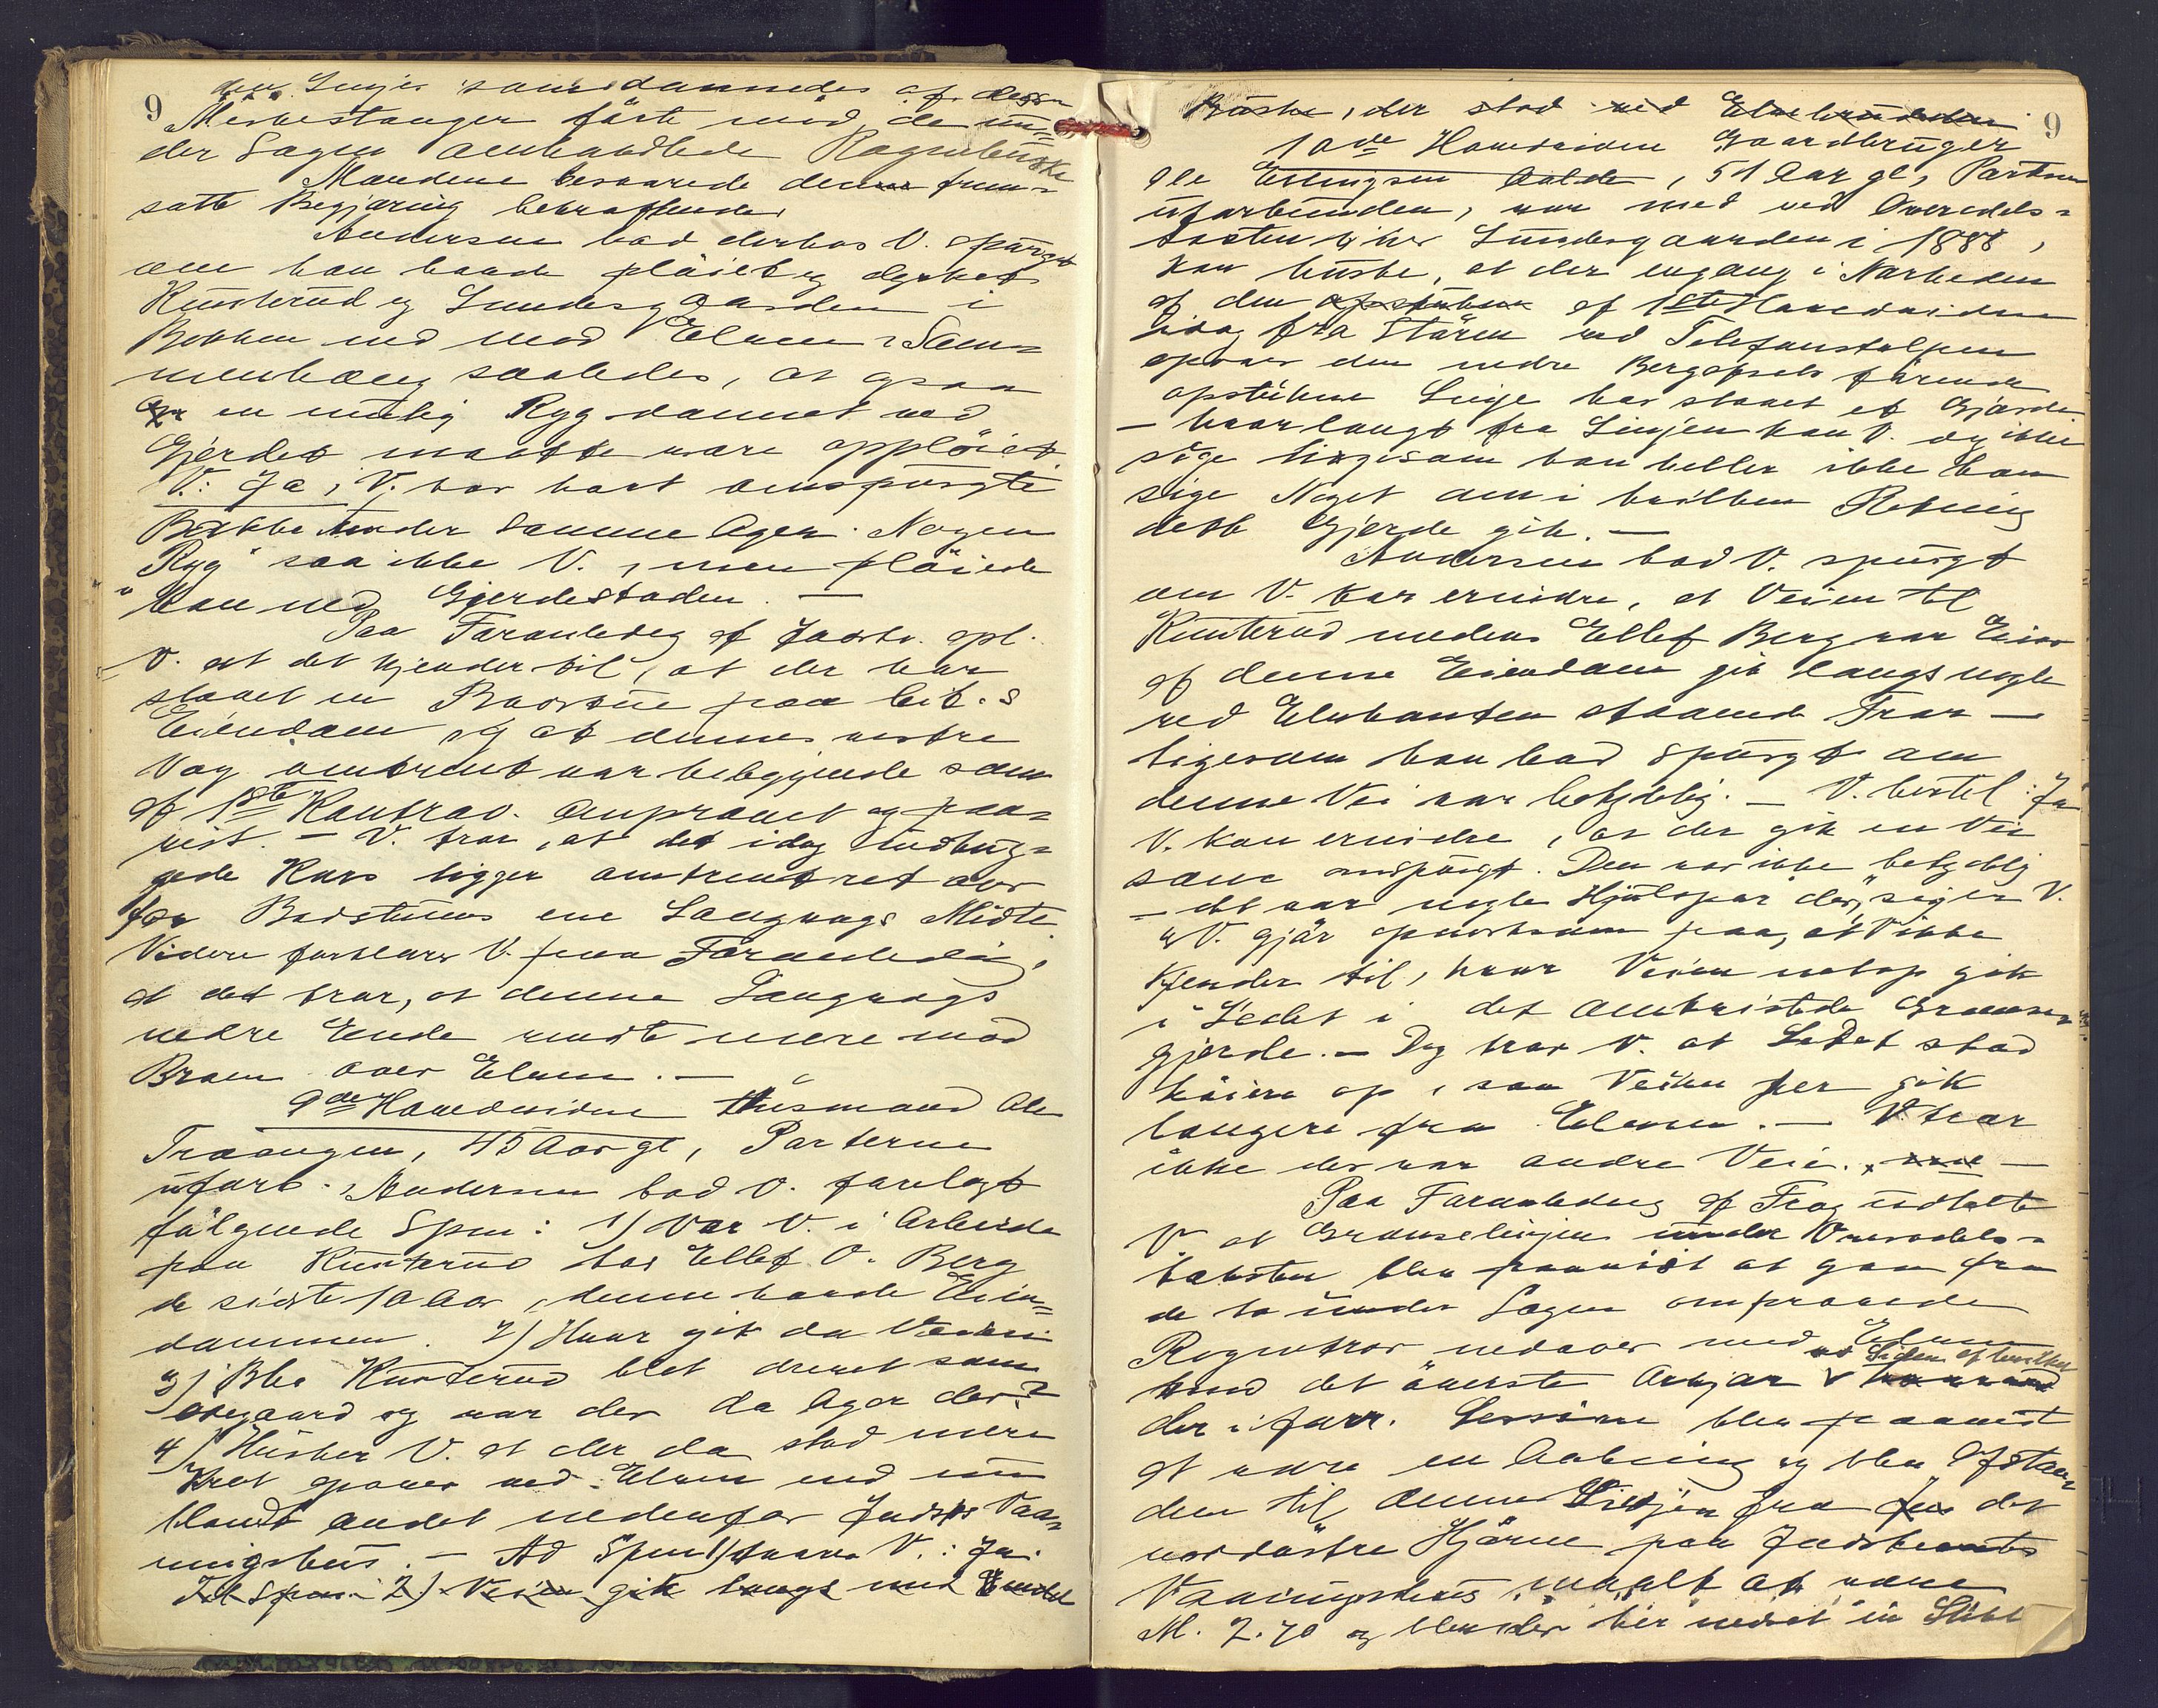 9
den Linjes som dannedes af disse
Merkestanger førte mod de un-
der Sagen omhandlede Rognebuske
Mændene besvarede denne frem-
satte Begjæring bekræftende.
Andersen bad derhos V. spurgt
om han havde pløiet og dyrket
Kunterud og Lundesgaarden i
Bakken ned mod Elven i Sam-
menhæng saaledes, at ogsaa
en mulig Ryg dannet ved
Gjerdet maatte være oppløiet.
V.: Ja, V. har havt omspurgte
Bakke under samme Ager. Nogen
"Ryg" saa ikke V., men pløiede
han ned Gjerdestaden. —
Paa Foranledig af Indstv. opl.
V. at det kjender til, at der har
staaet en Badstue paa Cit.s
Eiendom, og at dennes vestre
Væg omtrent var beliggende som
af 1ste Kontrav. anprovet og paa-
vist. — V. tror, at det idag indhug-
gede Kors ligger omtrent ret over
for Badstuens ene Langvægs Midte.
Videre forklarer V. paa Foranledig,
at det tror, at denne Langvægs
nedre Ende vendte mere mod
Broen over Elven. —
9de Hovedvidne Husmand Ole
Traaengen, 45 Aar gl, Parterne
uforb. Andersen bad V. forelagt
følgende Spm: 1) Var V. i Arbeide
paa Kunterud hos Ellef O. Berg
de sidste 10 Aar, denne havde Eien-
dommen. 2) Hvor gik da Veien
3) Blev Kunterud blot drevet som
ødegaard og var der da Ager der?
4) Husker V. at der da stod mere
Krat opover ved Elven end nu
blandt andet nedenfor Indst.s Vaa-
ningshus. — Ad Spm 1) svarer V.: Ja.
Til Spm. 2) Veien gik langs med Endel
9
Buske, der stod ved Elvebredden
10de Hovedvidne Gaardbruger
Ole Erlingsen Aalde, 51 Aar gl, Parterne
uforbunden, var med ved Overodels-
taksten over Lundesgaarden i 1888,
kan huske, at der engang i Nærheden
af den opstukne af 1ste Hovedvidne
idag fra Støren ved Telefonstolpen
opover den nedre Bergafsats førende
opstukne Linje har staaet et Gjærde
— hvor langt fra Linjen kan V. og ikke
sige ligesom han heller ikke kan
sige Noget om i hvilken Retning
dette Gjerde gik. —
Andersen bad V. spurgt
om V. kan erindre, at Veien til
Kunterud medens Ellef Berg var Eier
af denne Eiendom gik langs nogle
ved Elvekanten staaende Trær —
ligesom han bad spurgt om
denne Vei var betydelig. — V. bertel: Ja
V. kan erindre, at der gik en Vei
som omspurgt. Den var ikke betydelig
— det var nogle Hjulspor der, siger V.
og V. gjør opmerksom paa, at V ikke
kjender til, hvor Veien netop gik
i Ledet i det omtvistede Grænse-
gjerde. — Dog tror V. at Ledet stod
høiere op, saa Veien her gik
længere fra Elven. — V tror
ikke der var andre Veie. —
Paa Foranledig af Frog udtalte
V at Grænselinjen under Overodels-
taksten blev paavist at gaa fra
de to under Sagen omprovede
Rognetrær nedover mod Elven
mod det øverste Orkjær ved Siden af hvilken
der i forr. Session blev paavist
at være en Aabning og blev Afstan-
den til denne Linjen fra det
nordøstre Hjørne paa Indstevntes
Vaaningshus maalt at være
M. 2.70 og blev der her nedsat en Stikke